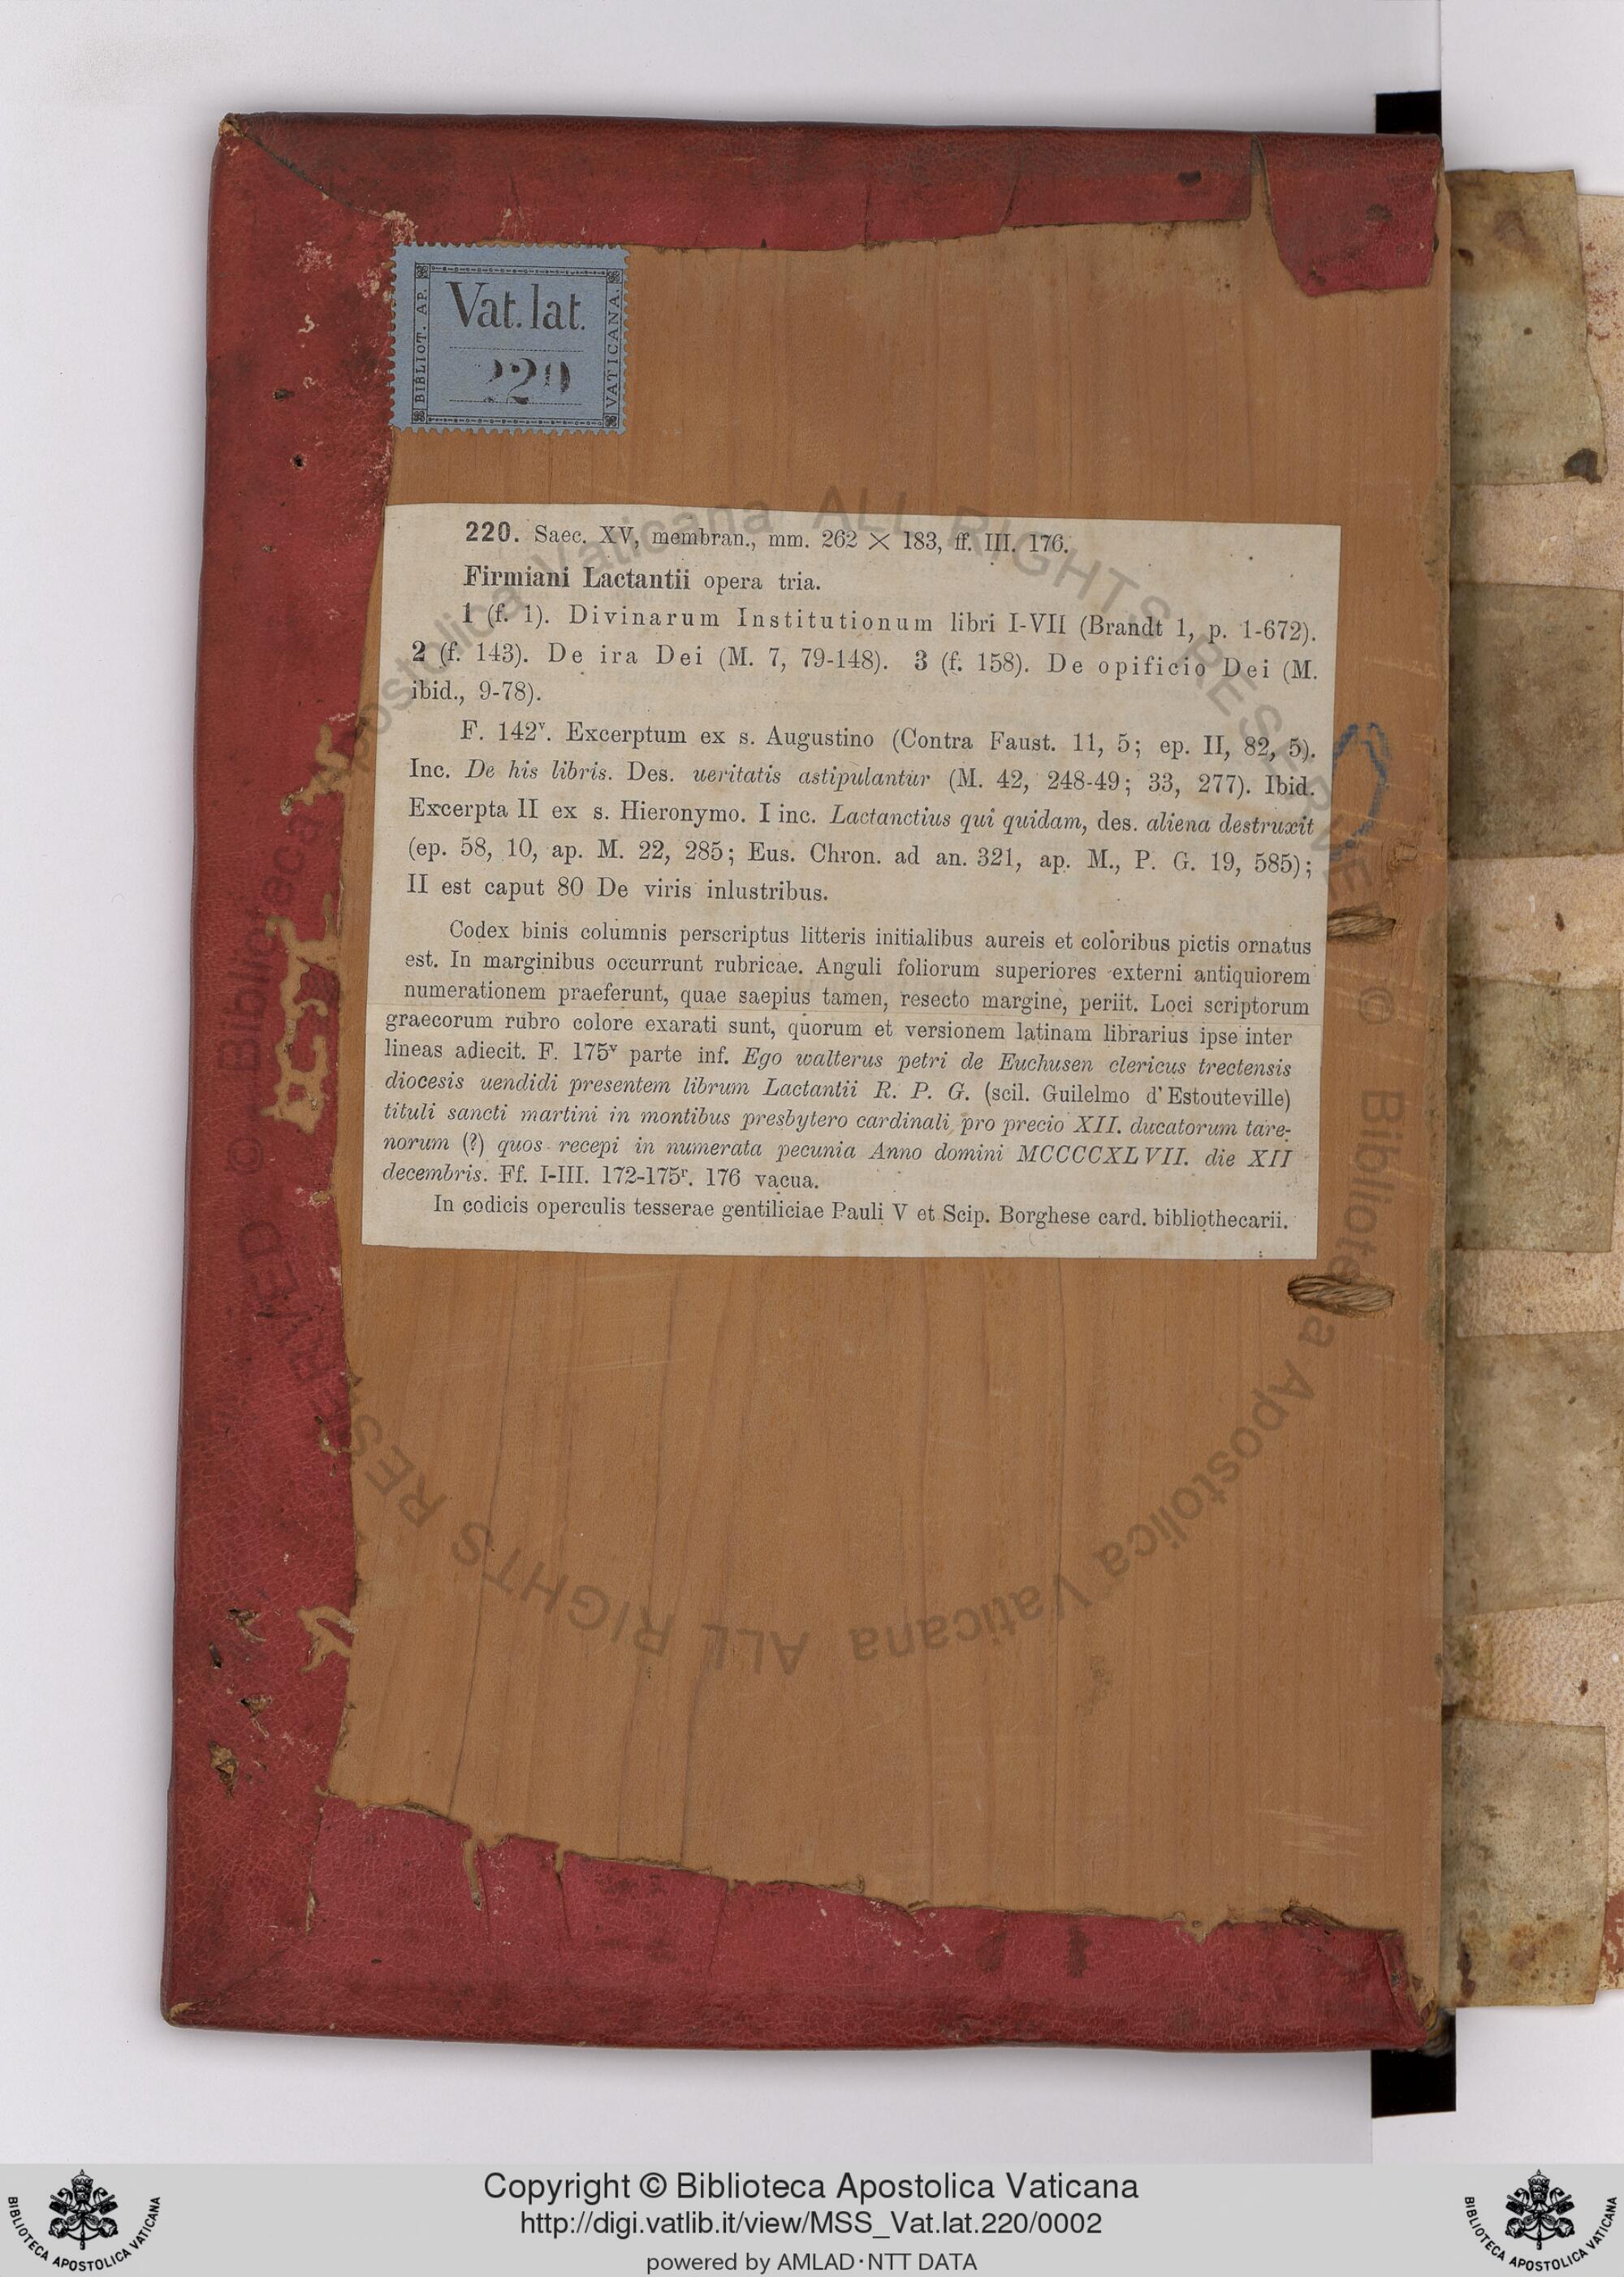 BIBLIOT. AP. VATICANA.
Vat. lat.
220
220. Saec. XV, membran., mm. 262 × 183, ff. III. 176.
Firmiani Lactantii opera tria.
1 (f. 1). Divinarum Institutionum libri I-VII (Brandt 1, p. 1-672).
2 (f. 143). De ira Dei (M. 7, 79-148). 3 (f. 158). De opificio Dei (M.
ibid., 9-78).
F. 142ᵛ. Excerptum ex s. Augustino (Contra Faust. 11, 5; ep. II, 82, 5).
Inc. De his libris. Des. ueritatis astipulantur (M. 42, 248-49; 33, 277). Ibid.
Excerpta II ex s. Hieronymo. I inc. Lactanctius qui quidam, des. aliena destruxit
(ep. 58, 10, ap. M. 22, 285; Eus. Chron. ad an. 321, ap. M., P. G. 19, 585);
II est caput 80 De viris inlustribus.
Codex binis columnis perscriptus litteris initialibus aureis et coloribus pictis ornatus
est. In marginibus occurrunt rubricae. Anguli foliorum superiores externi antiquiorem
numerationem praeferunt, quae saepius tamen, resecto margine, periit. Loci scriptorum
graecorum rubro colore exarati sunt, quorum et versionem latinam librarius ipse inter
lineas adiecit. F. 175ᵛ parte inf. Ego walterus petri de Euchusen clericus trectensis
diocesis uendidi presentem librum Lactantii R. P. G. (scil. Guilelmo d'Estouteville)
tituli sancti martini in montibus presbytero cardinali pro precio XII. ducatorum tare-
norum (?) quos recepi in numerata pecunia Anno domini MCCCCXLVII. die XII
decembris. Ff. I-III. 172-175ʳ. 176 vacua.
In codicis operculis tesserae gentiliciae Pauli V et Scip. Borghese card. bibliothecarii.
© Biblioteca Apostolica Vaticana ALL RIGHTS RESERVED
© Biblioteca Apostolica Vaticana ALL RIGHTS RESERVED
Copyright © Biblioteca Apostolica Vaticana
http://digi.vatlib.it/view/MSS_Vat.lat.220/0002
powered by AMLAD·NTT DATA
BIBLIOTECA APOSTOLICA VATICANA
BIBLIOTECA APOSTOLICA VATICANA